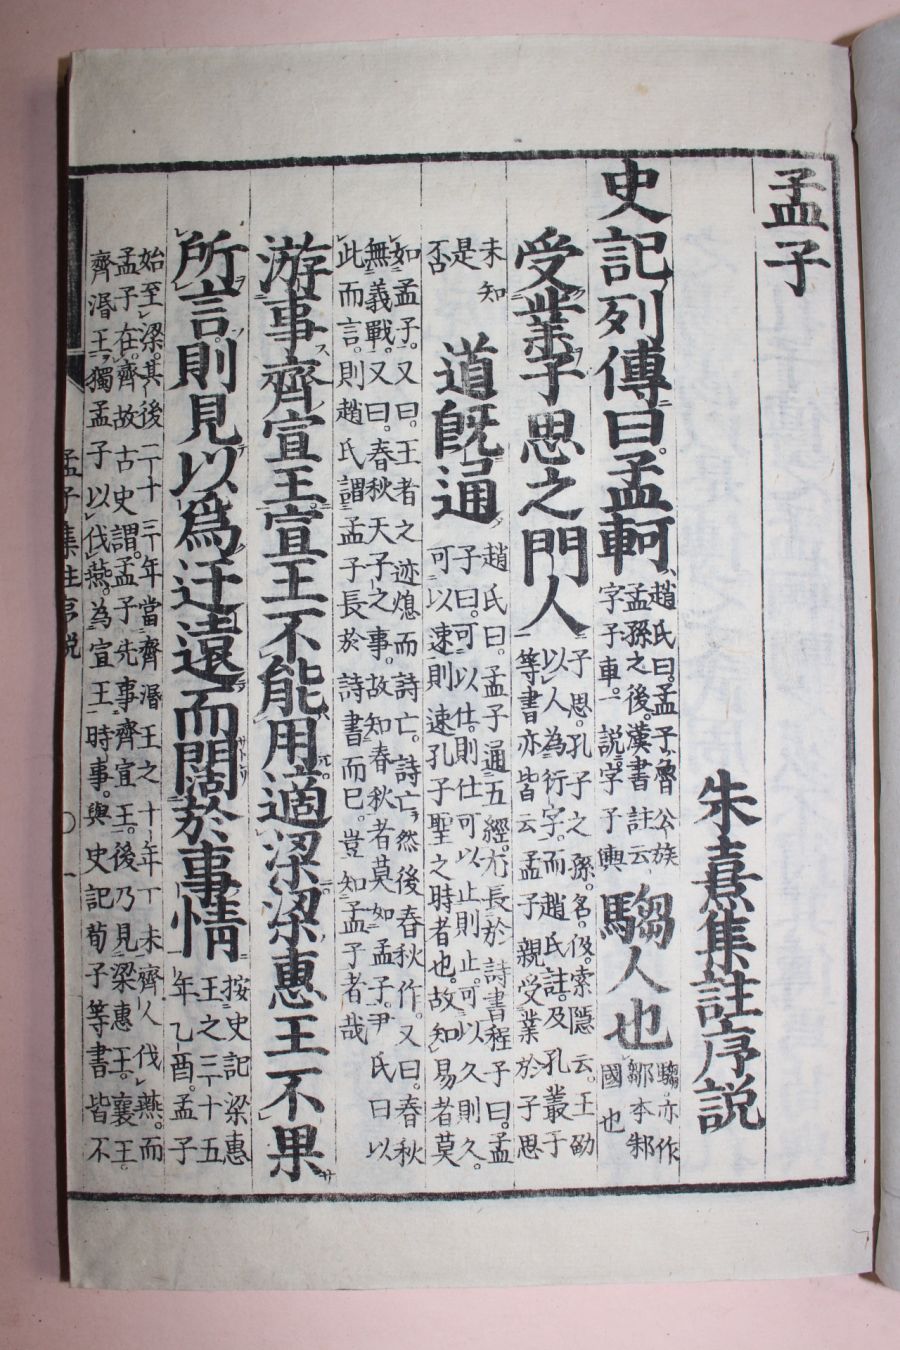 孟子
朱熹集註序説
史記列傳曰孟軻
趙氏曰。孟子魯公族
孟孫之後。漢書註云
字子車。一説。字子輿
騶人也
騶。亦作
鄒本邾
國也
受業子思之門人
子思。孔子之孫。名伋。索隱云。王劭
以人為衍字。而趙氏註。及孔叢子
等書亦皆云孟子親受業於子思
未知
是
否
道既通
趙氏曰。孟子通五經。尤長於詩書程子曰。孟
子曰。可以仕。則仕可以止則止。可以久則久。
可以速則速孔子聖之時者也。故知易者莫
如孟子。又曰。王者之迹熄而詩亡。詩亡然後春秋作。又曰。春秋
無義戰。又曰。春秋天子之事。故知春秋者莫如孟子。尹氏曰以
此而言。則趙氏謂孟子長於詩書而已。豈知孟子者哉
游事齊宣王。宣王不能用適梁梁惠王不果
所言。則見以爲迂遠而闊於事情
按史記梁惠
王之三十五
年乙酉。孟子
始至梁。其後二十三年當齊湣王之十年丁未齊人伐燕。而
孟子在齊故古史謂。孟子先事齊宣王。後乃見梁惠王。襄王。
齊湣王。獨孟子以伐燕。為宣王時事。與史記荀子等書皆不
孟子集註序説
一